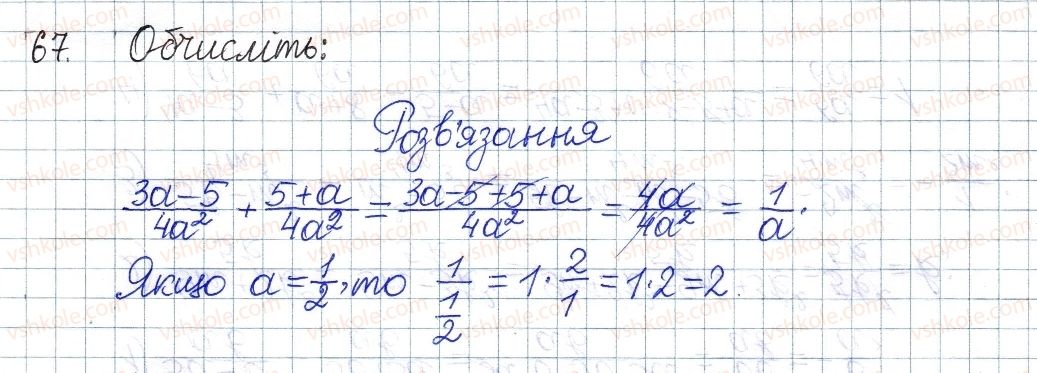 67. Обчисліть:
Розв'язання
(3a-5)/(4a²) + (5+a)/(4a²) = (3a-5+5+a)/(4a²) = 4a/4a² = 1/a.
Якщо a = 1/2, то 1/(1/2) = 1 · 2/1 = 1·2 = 2.